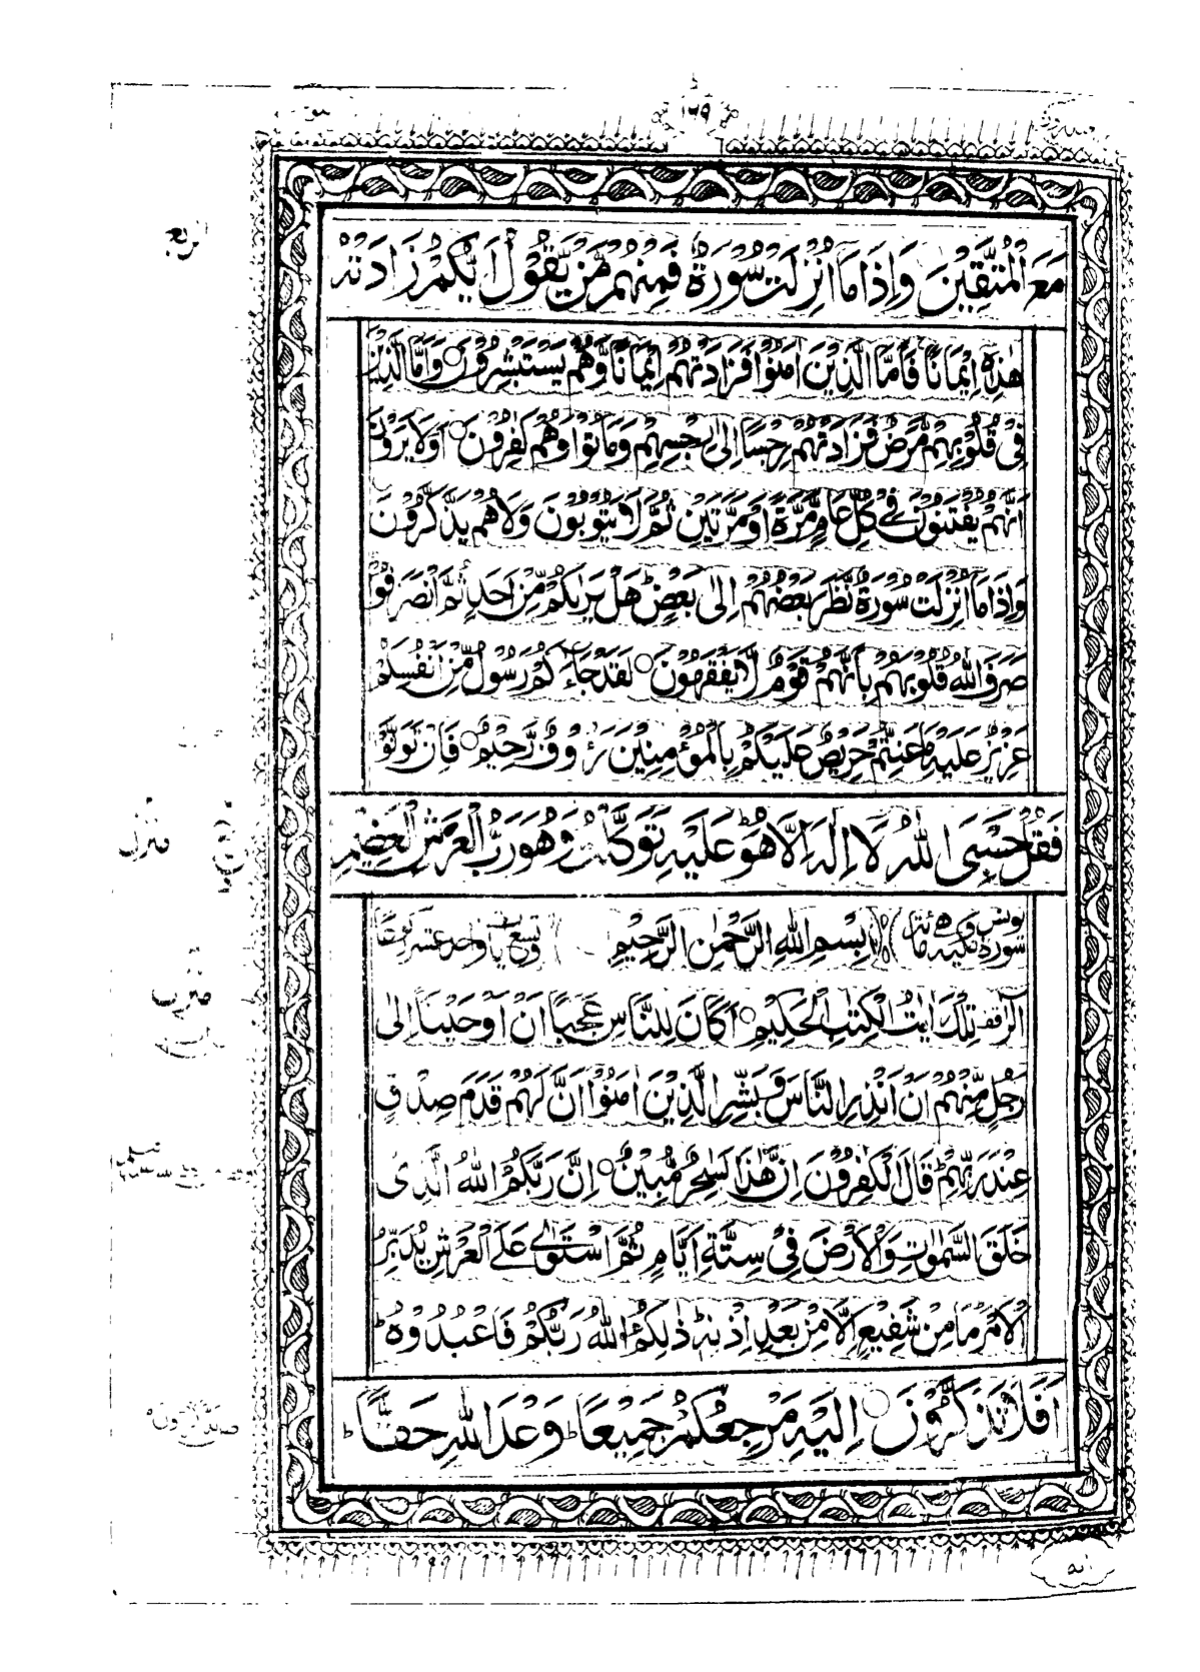 ١٢٩
مَعَ الْمُتَّقِيْنَ وَاِذَا مَا اُنْزِلَتْ سُوْرَةٌ فَمِنْهُمْ مَّنْ يَّقُوْلُ اَيُّكُمْ زَادَتْهُ
هٰذِهٖ اِيْمَانًا فَاَمَّا الَّذِيْنَ اٰمَنُوْا فَزَادَتْهُمْ اِيْمَانًا وَّهُمْ يَسْتَبْشِرُوْنَ ○ وَاَمَّا الَّذِيْنَ
فِيْ قُلُوْبِهِمْ مَّرَضٌ فَزَادَتْهُمْ رِجْسًا اِلٰى رِجْسِهِمْ وَمَاتُوْا وَهُمْ كٰفِرُوْنَ ○ اَوَلَا يَرَوْنَ
اَنَّهُمْ يُفْتَنُوْنَ فِيْ كُلِّ عَامٍ مَّرَّةً اَوْ مَرَّتَيْنِ ثُمَّ لَا يَتُوْبُوْنَ وَلَا هُمْ يَذَّكَّرُوْنَ
وَاِذَا مَا اُنْزِلَتْ سُوْرَةٌ نَّظَرَ بَعْضُهُمْ اِلٰى بَعْضٍ ؕ هَلْ يَرٰىكُمْ مِّنْ اَحَدٍ ثُمَّ انْصَرَفُوْا
صَرَفَ اللّٰهُ قُلُوْبَهُمْ بِاَنَّهُمْ قَوْمٌ لَّا يَفْقَهُوْنَ ○ لَقَدْ جَآءَكُمْ رَسُوْلٌ مِّنْ اَنْفُسِكُمْ
عَزِيْزٌ عَلَيْهِ مَا عَنِتُّمْ حَرِيْصٌ عَلَيْكُمْ بِالْمُؤْمِنِيْنَ رَءُوْفٌ رَّحِيْمٌ ○ فَاِنْ تَوَلَّوْا
فَقُلْ حَسْبِيَ اللّٰهُ لَا اِلٰهَ اِلَّا هُوَ ؕ عَلَيْهِ تَوَكَّلْتُ وَهُوَ رَبُّ الْعَرْشِ الْعَظِيْمِ
سُوْرَةُ يُوْنُسَ مَكِّيَّةٌ وَهِيَ مِائَةٌ بِسْمِ اللّٰهِ الرَّحْمٰنِ الرَّحِيْمِ
الٓرٰ قف تِلْكَ اٰيٰتُ الْكِتٰبِ الْحَكِيْمِ ○ اَكَانَ لِلنَّاسِ عَجَبًا اَنْ اَوْحَيْنَا اِلٰى
رَجُلٍ مِّنْهُمْ اَنْ اَنْذِرِ النَّاسَ وَبَشِّرِ الَّذِيْنَ اٰمَنُوْا اَنَّ لَهُمْ قَدَمَ صِدْقٍ
عِنْدَ رَبِّهِمْ ؕ قَالَ الْكٰفِرُوْنَ اِنَّ هٰذَا لَسٰحِرٌ مُّبِيْنٌ ○ اِنَّ رَبَّكُمُ اللّٰهُ الَّذِيْ
خَلَقَ السَّمٰوٰتِ وَالْاَرْضَ فِيْ سِتَّةِ اَيَّامٍ ثُمَّ اسْتَوٰى عَلَى الْعَرْشِ يُدَبِّرُ
الْاَمْرَ مَا مِنْ شَفِيْعٍ اِلَّا مِنْ بَعْدِ اِذْنِهٖ ؕ ذٰلِكُمُ اللّٰهُ رَبُّكُمْ فَاعْبُدُوْهُ ؕ
اَفَلَا تَذَكَّرُوْنَ ○ اِلَيْهِ مَرْجِعُكُمْ جَمِيْعًا ؕ وَعْدَ اللّٰهِ حَقًّا ؕ
منزل